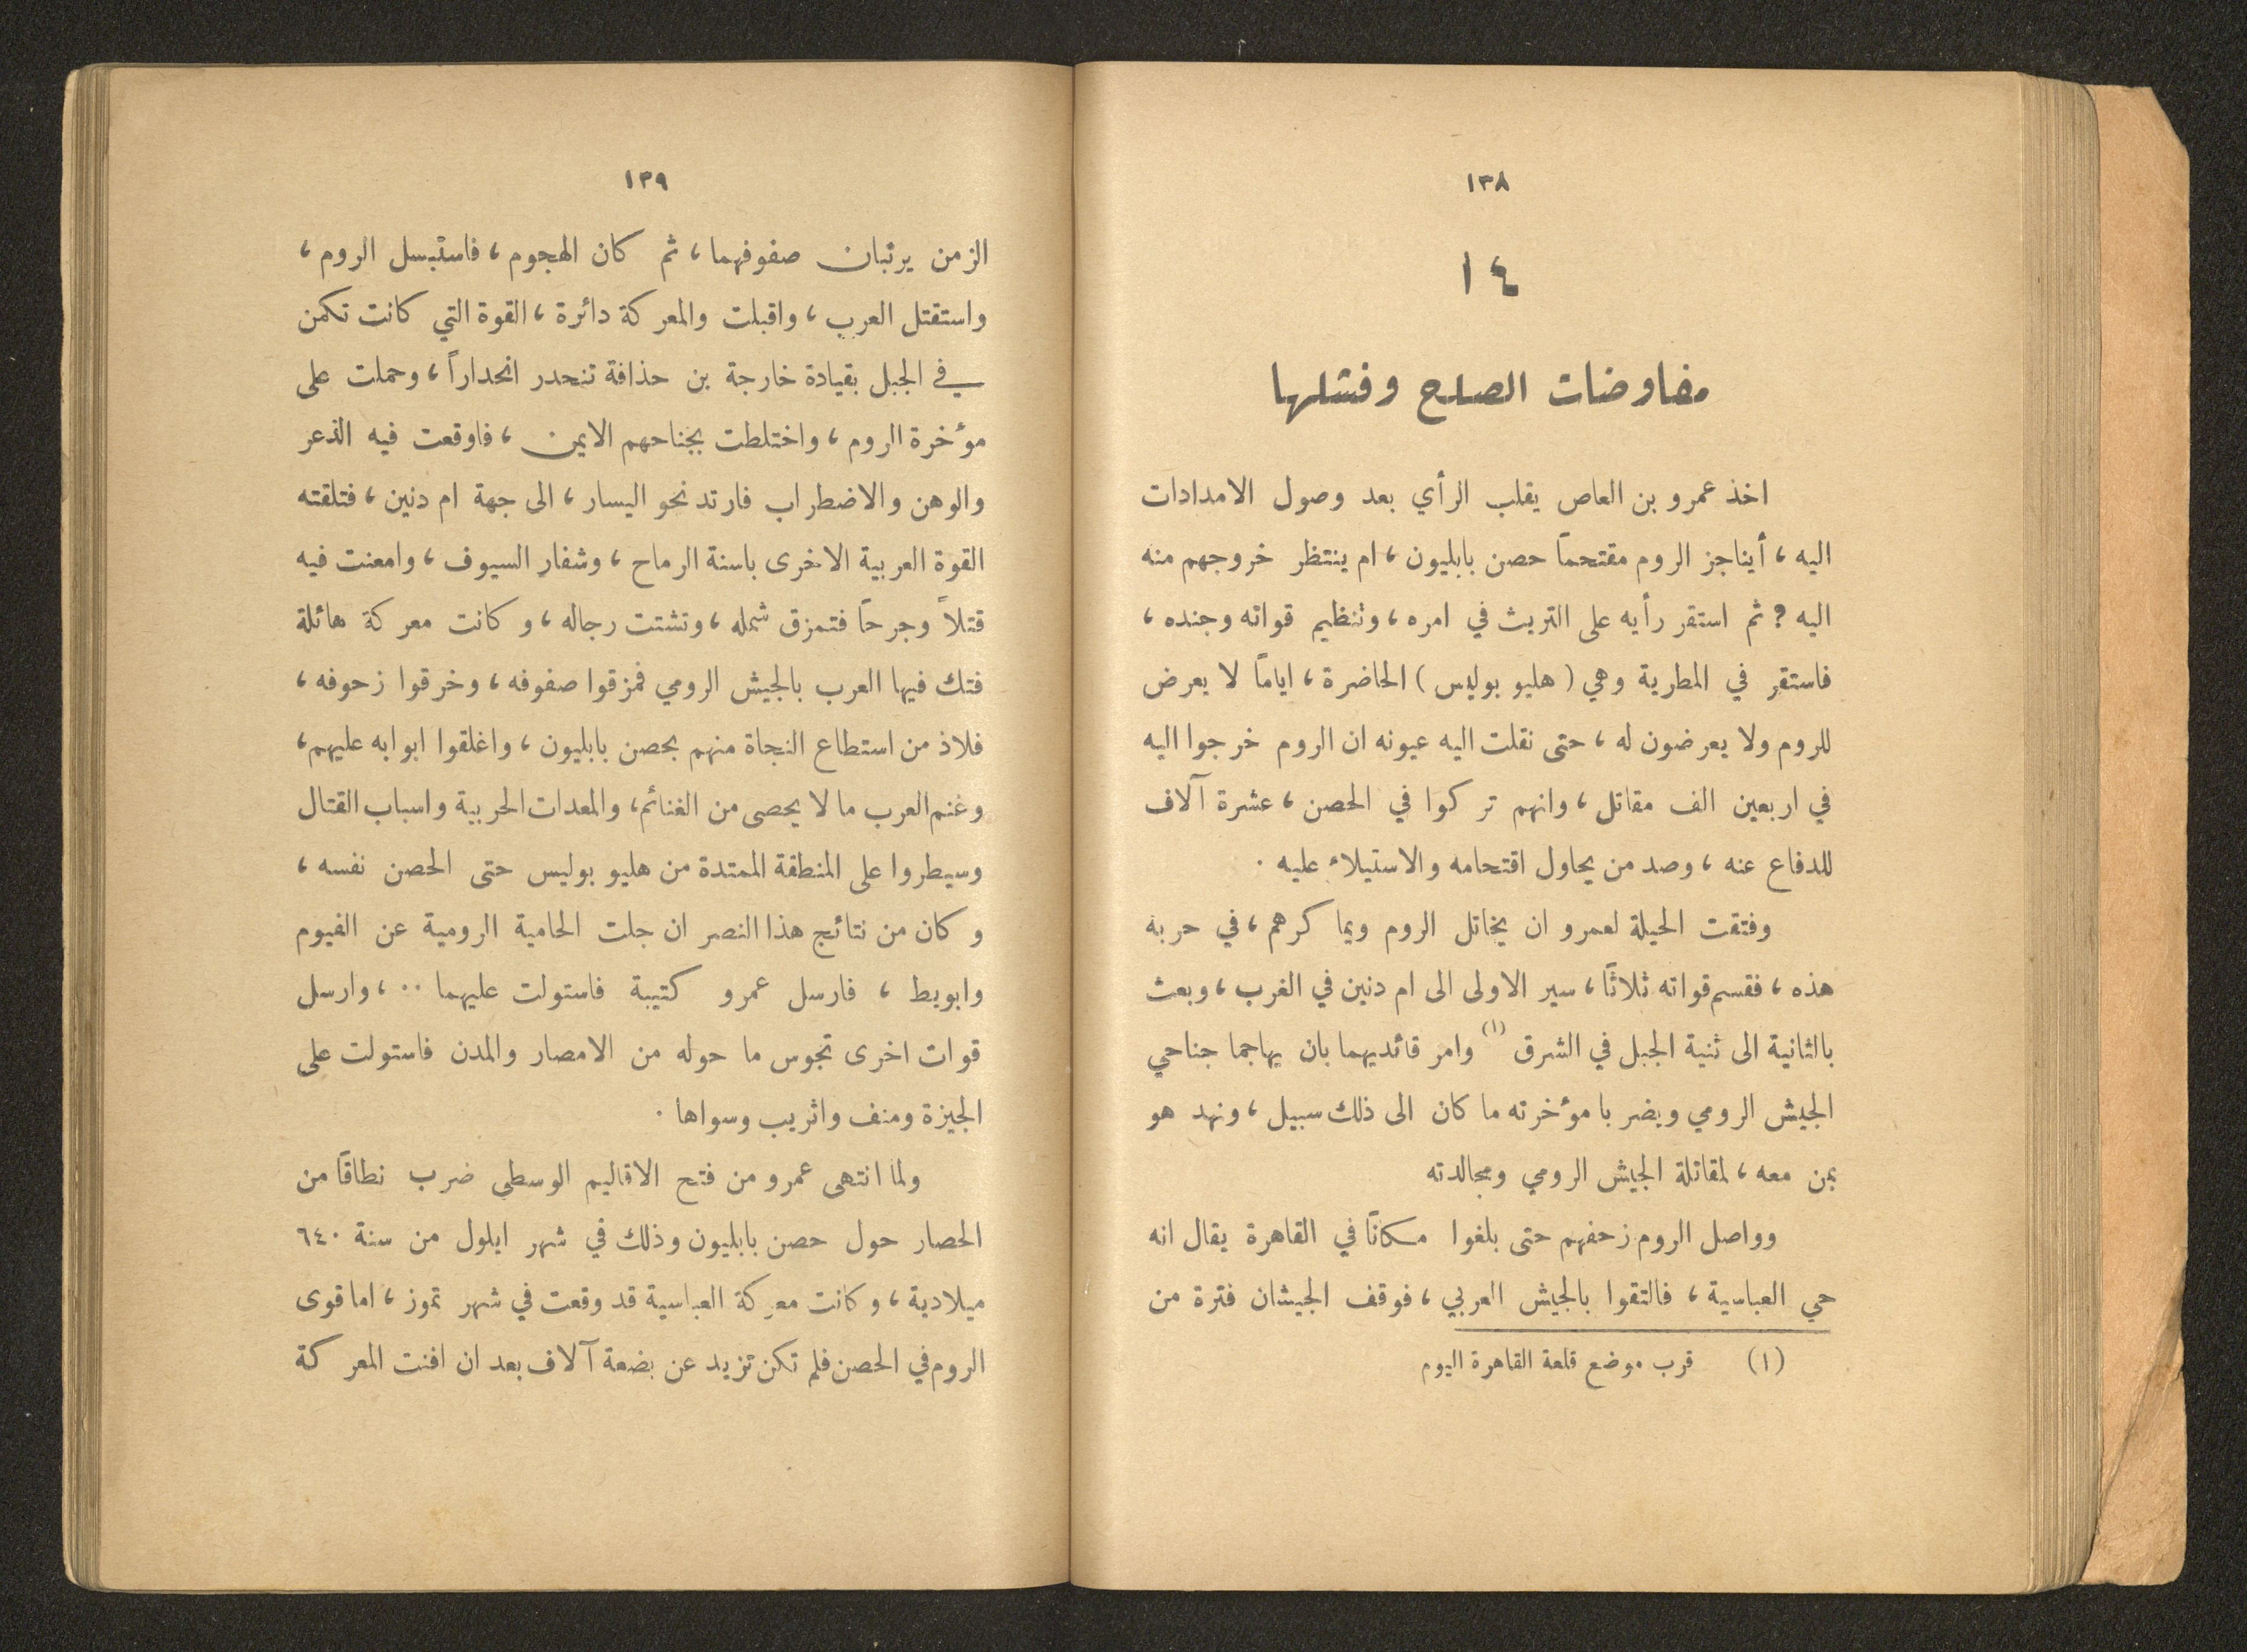 ١٣٨
١٤
مفاوضات الصلح وفشلها
اخذ عمرو بن العاص يقلب الرأي بعد وصول الامدادات
اليه ، أيناجز الروم مقتحماً حصن بابليون ، ام ينتظر خروجهم منه
اليه ? ثم استقر رأيه على التريث في امره ، وتنظيم قواته وجنده ،
فاستقر في المطرية وهي ( هليو بوليس ) الحاضرة ، اياماً لا يعرض
للروم ولا يعرضون له ، حتى نقلت اليه عيونه ان الروم خرجوا اليه
في اربعين الف مقاتل ، وانهم تركوا في الحصن ، عشرة آلاف
للدفاع عنه ، وصد من يحاول اقتحامه والاستيلاء عليه .
وفتقت الحيلة لعمرو ان يخاتل الروم ويماكرهم ، في حربه
هذه ، فقسم قواته ثلاثاً ، سير الاولى الى ام دنين في الغرب ، وبعث
بالثانية الى ثنية الجبل في الشرق (١) وامر قائديهما بان يهاجما جناحي
الجيش الرومي ويضربا مؤخرته ما كان الى ذلك سبيل ، ونهد هو
بمن معه ، لمقاتلة الجيش الرومي ومجالدته
وواصل الروم زحفهم حتى بلغوا مكاناً في القاهرة يقال انه
حي العباسية ، فالتقوا بالجيش العربي ، فوقف الجيشان فترة من
(١) قرب موضع قلعة القاهرة اليوم
١٣٩
الزمن يرتبان صفوفهما ، ثم كان الهجوم ، فاستبسل الروم ،
واستقتل العرب ، واقبلت والمعركة دائرة ، القوة التي كانت تكمن
في الجبل بقيادة خارجة بن حذافة تنحدر انحداراً ، وحملت على
مؤخرة الروم ، واختلطت بجناحهم الايمن ، فاوقعت فيه الذعر
والوهن والاضطراب فارتد نحو اليسار ، الى جهة ام دنين ، فتلقته
القوة العربية الاخرى باسنة الرماح ، وشفار السيوف ، وامعنت فيه
قتلاً وجرحاً فتمزق شمله ، وتشتت رجاله ، وكانت معركة هائلة
فتك فيها العرب بالجيش الرومي فمزقوا صفوفه ، وخرقوا زحوفه ،
فلاذ من استطاع النجاة منهم بحصن بابليون ، واغلقوا ابوابه عليهم ،
وغنم العرب ما لا يحصى من الغنائم ، والمعدات الحربية واسباب القتال
وسيطروا على المنطقة الممتدة من هليو بوليس حتى الحصن نفسه ،
وكان من نتائج هذا النصر ان جلت الحامية الرومية عن الفيوم
وابويط ، فارسل عمرو كتيبة فاستولت عليهما .. ، وارسل
قوات اخرى تجوس ما حوله من الامصار والمدن فاستولت على
الجيزة ومنف واثريب وسواها .
ولما انتهى عمرو من فتح الاقاليم الوسطى ضرب نطاقاً من
الحصار حول حصن بابليون وذلك في شهر ايلول من سنة ٦٤٠
ميلادية ، وكانت معركة العباسية قد وقعت في شهر تموز ، اما قوى
الروم في الحصن فلم تكن تزيد عن بضعة آلاف بعد ان افنت المعركة